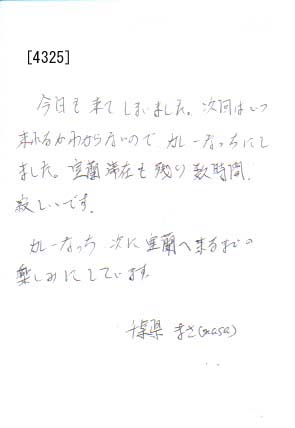 [4325]
今日も来てしまいました。次回はいつ
来れるかわからないので カレーなっちにし
ました。室蘭滞在も残り数時間、
寂しいです。
カレーなっち 次に室蘭へ来るまでの
楽しみにしています。
千葉県 まさ(masa)